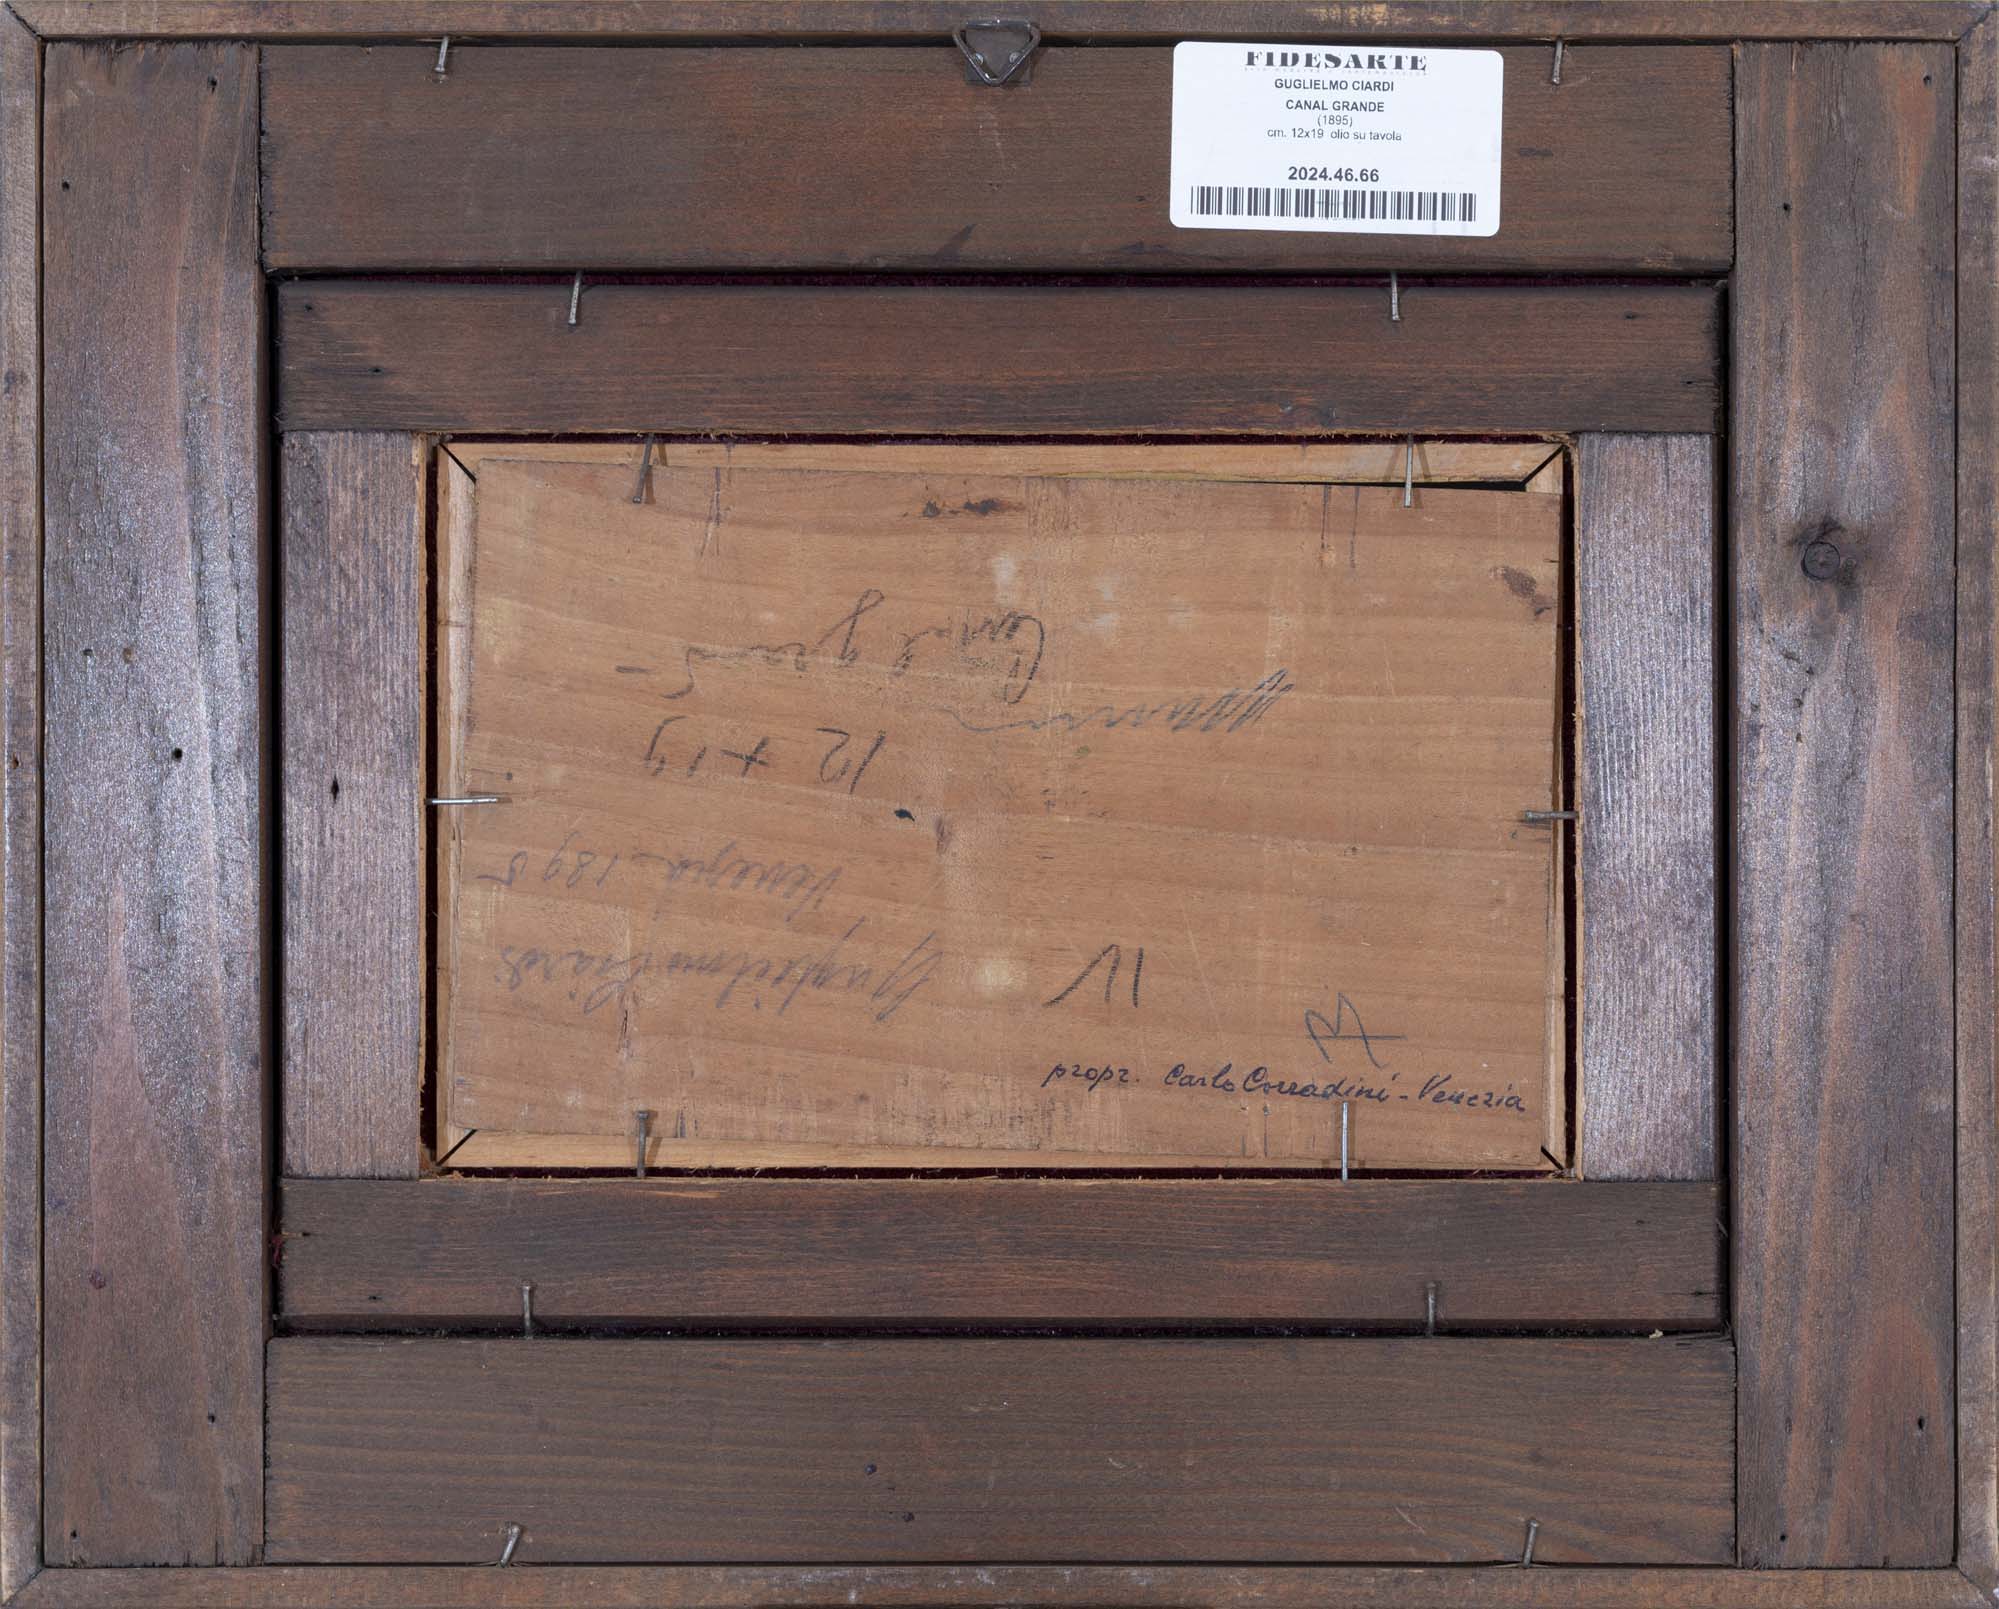 FIDESARTE
GUGLIELMO CIARDI
CANAL GRANDE
(1895)
cm. 12x19 olio su tavola
2024.46.66
Guglielmo Ciardi
Venezia - 1895
12 + 19
propr. Carlo Corradini - Venezia